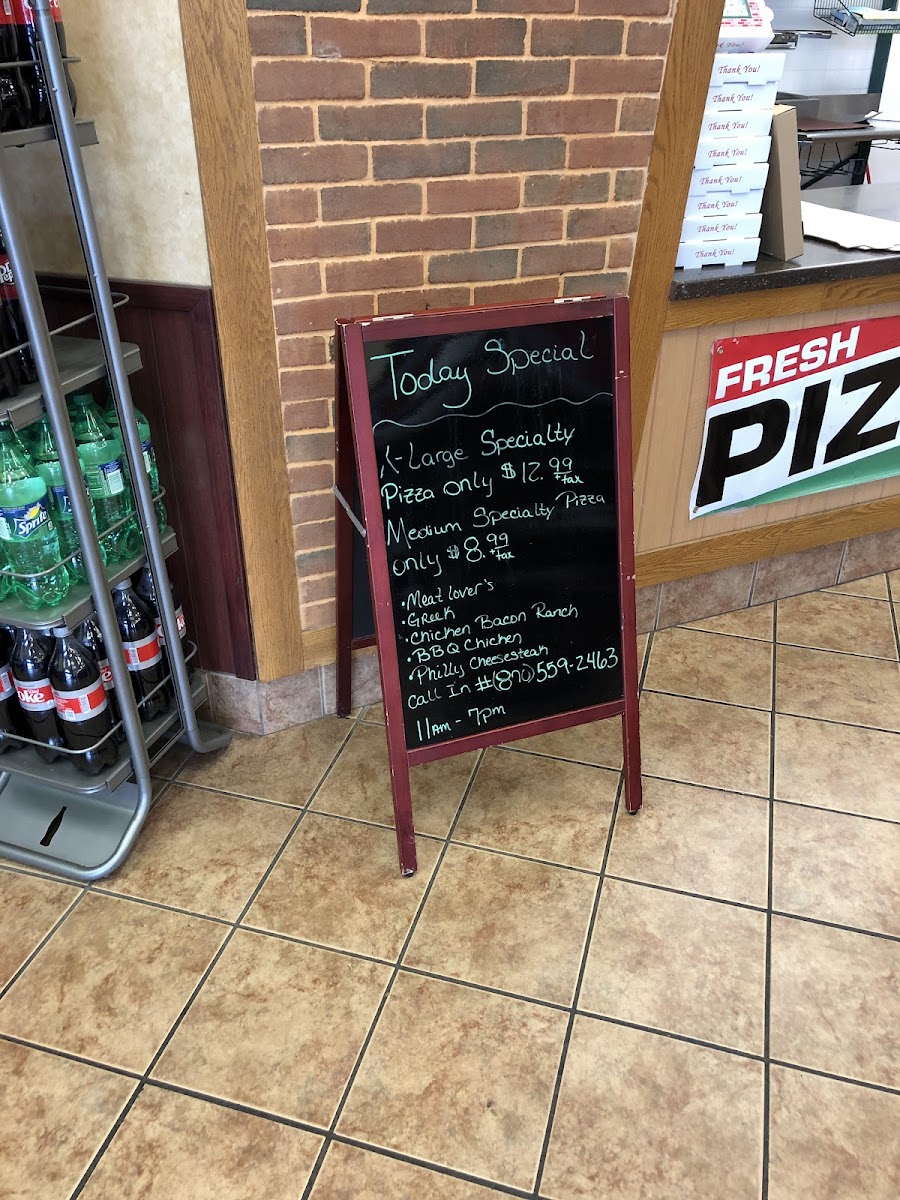 Today Special
X-Large Specialty
Pizza only $12.99
+tax
Medium Specialty Pizza
only $8.99
+tax
•Meat Lover's
•Greek
•Chicken Bacon Ranch
•BBQ Chicken
•Philly Cheesesteak
Call In #(870)559-2463
11am - 7pm
Thank You!
Thank You!
Thank You!
Thank You!
Thank You!
Thank You!
Thank You!
FRESH
PIZ
Sprite
oke